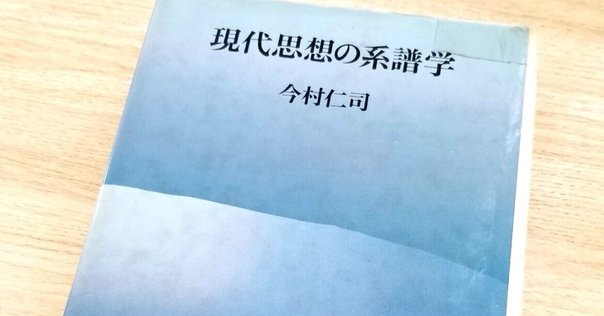 現代思想の系譜学
今村仁司